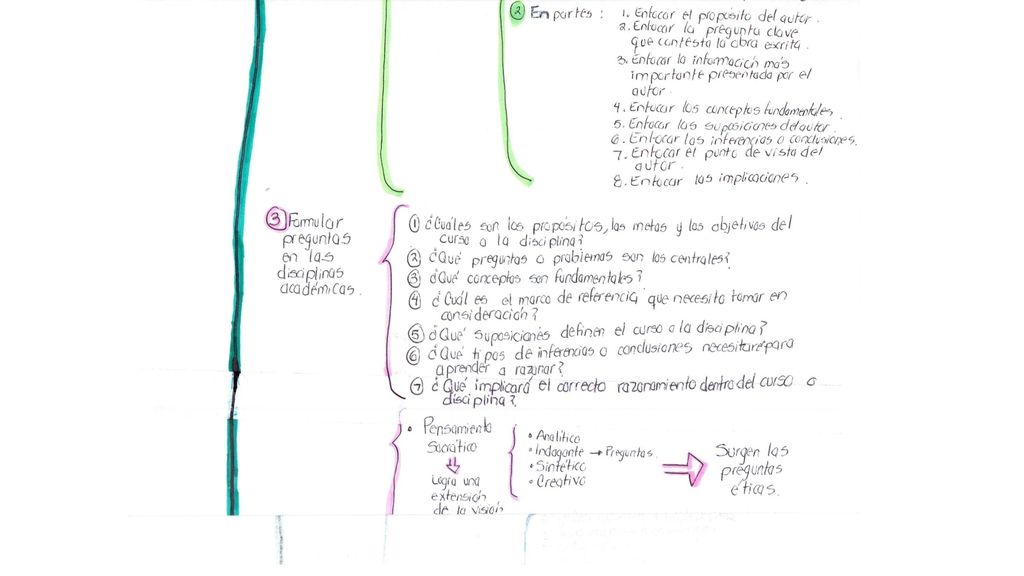 ② En partes: 1. Enfocar el propósito del autor.
2. Enfocar la pregunta clave
que contesta la obra escrita.
3. Enfocar la información más
importante presentada por el
autor.
4. Enfocar los conceptos fundamentales.
5. Enfocar las suposiciones del autor.
6. Enfocar las inferencias o conclusiones.
7. Enfocar el punto de vista del
autor.
8. Enfocar las implicaciones.
③ Formular
preguntas
en las
disciplinas
académicas.
① ¿Cuáles son los propósitos, las metas y los objetivos del
curso o la disciplina?
② ¿Qué preguntas o problemas son los centrales?
③ ¿Qué conceptos son fundamentales?
④ ¿Cuál es el marco de referencia que necesito tomar en
consideración?
⑤ ¿Qué suposiciones definen el curso o la disciplina?
⑥ ¿Qué tipos de inferencias o conclusiones necesitaré para
aprender a razonar?
⑦ ¿Qué implicará el correcto razonamiento dentro del curso o
disciplina?
• Pensamiento
Socrático
Logra una
extensión
de la visión
• Analítico
• Indagante → Preguntas
• Sintético
• Creativo
Surgen las
preguntas
éticas.